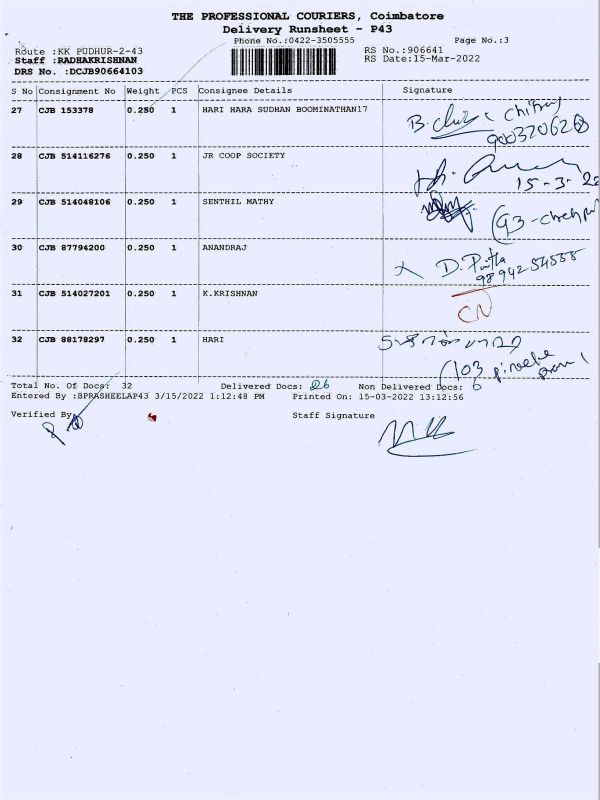 THE PROFESSIONAL COURIERS, Coimbatore
Delivery Runsheet - P43
Phone No.:0422-3505555 Page No.:3
Route :KK PUDHUR-2-43 RS No.:906641
Staff :RADHAKRISHNAN RS Date:15-Mar-2022
DRS No. :DCJB90664103
S No Consignment No Weight PCS Consignee Details Signature
27 CJB 153378 0.250 1 HARI HARA SUDHAN BOOMINATHAN17
28 CJB 514116276 0.250 1 JR COOP SOCIETY
15-3-22
29 CJB 514048106 0.250 1 SENTHIL MATHY
30 CJB 87794200 0.250 1 ANANDRAJ
98942 54555
31 CJB 514027201 0.250 1 K.KRISHNAN
CN
32 CJB 88178297 0.250 1 HARI
103
Total No. Of Docs: 32 Delivered Docs: 26 Non Delivered Docs: 6
Entered By :BPRASHEELAP43 3/15/2022 1:12:48 PM Printed On: 15-03-2022 13:12:56
Verified By Staff Signature